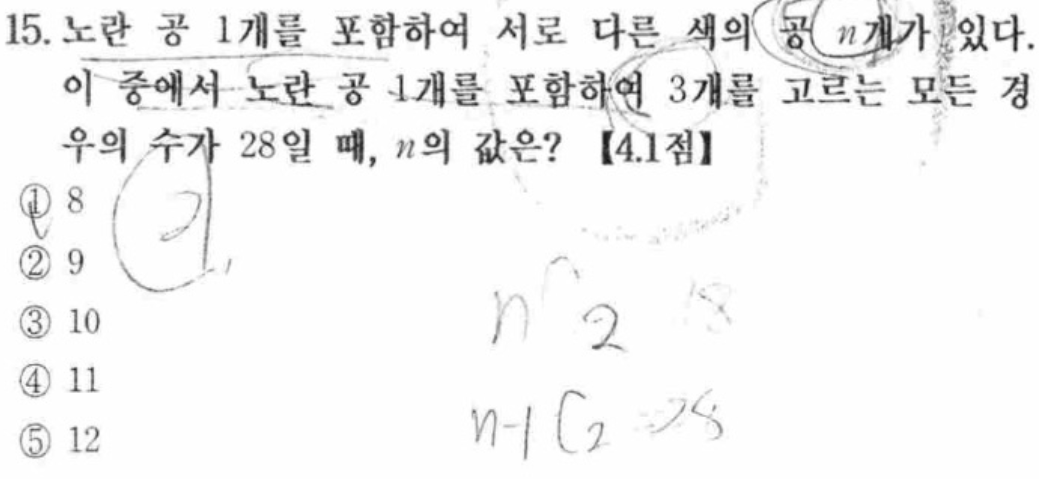 15. 노란 공 1개를 포함하여 서로 다른 색의 공 n개가 있다.
이 중에서 노란 공 1개를 포함하여 3개를 고르는 모든 경
우의 수가 28일 때, n의 값은? 【4.1점】
① 8
② 9
③ 10
④ 11
⑤ 12
nC2
n-1C2 = 28